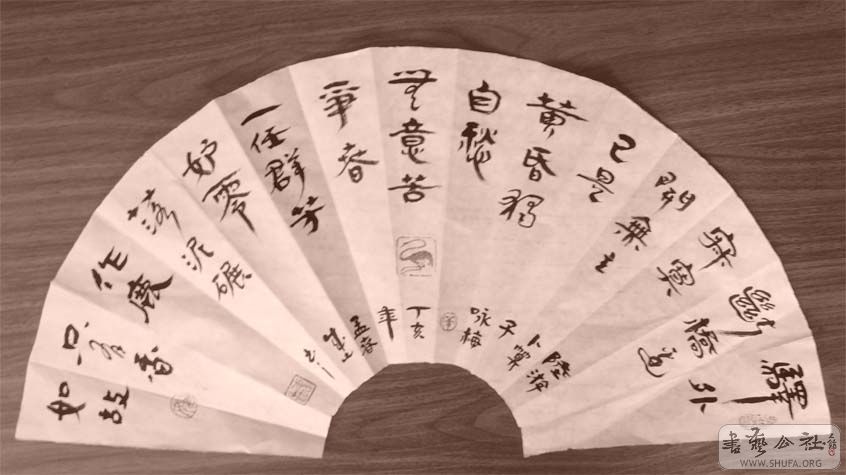 驛外
斷橋邊
寂寞
開無主
已是
黃昏獨
自愁
無意苦
爭春
一任群芳
妒零
落泥碾
作塵
只有香
如故
陸游
卜算
子
咏梅
丁亥
年
孟春
書藝公社
WWW.SHUFA.ORG